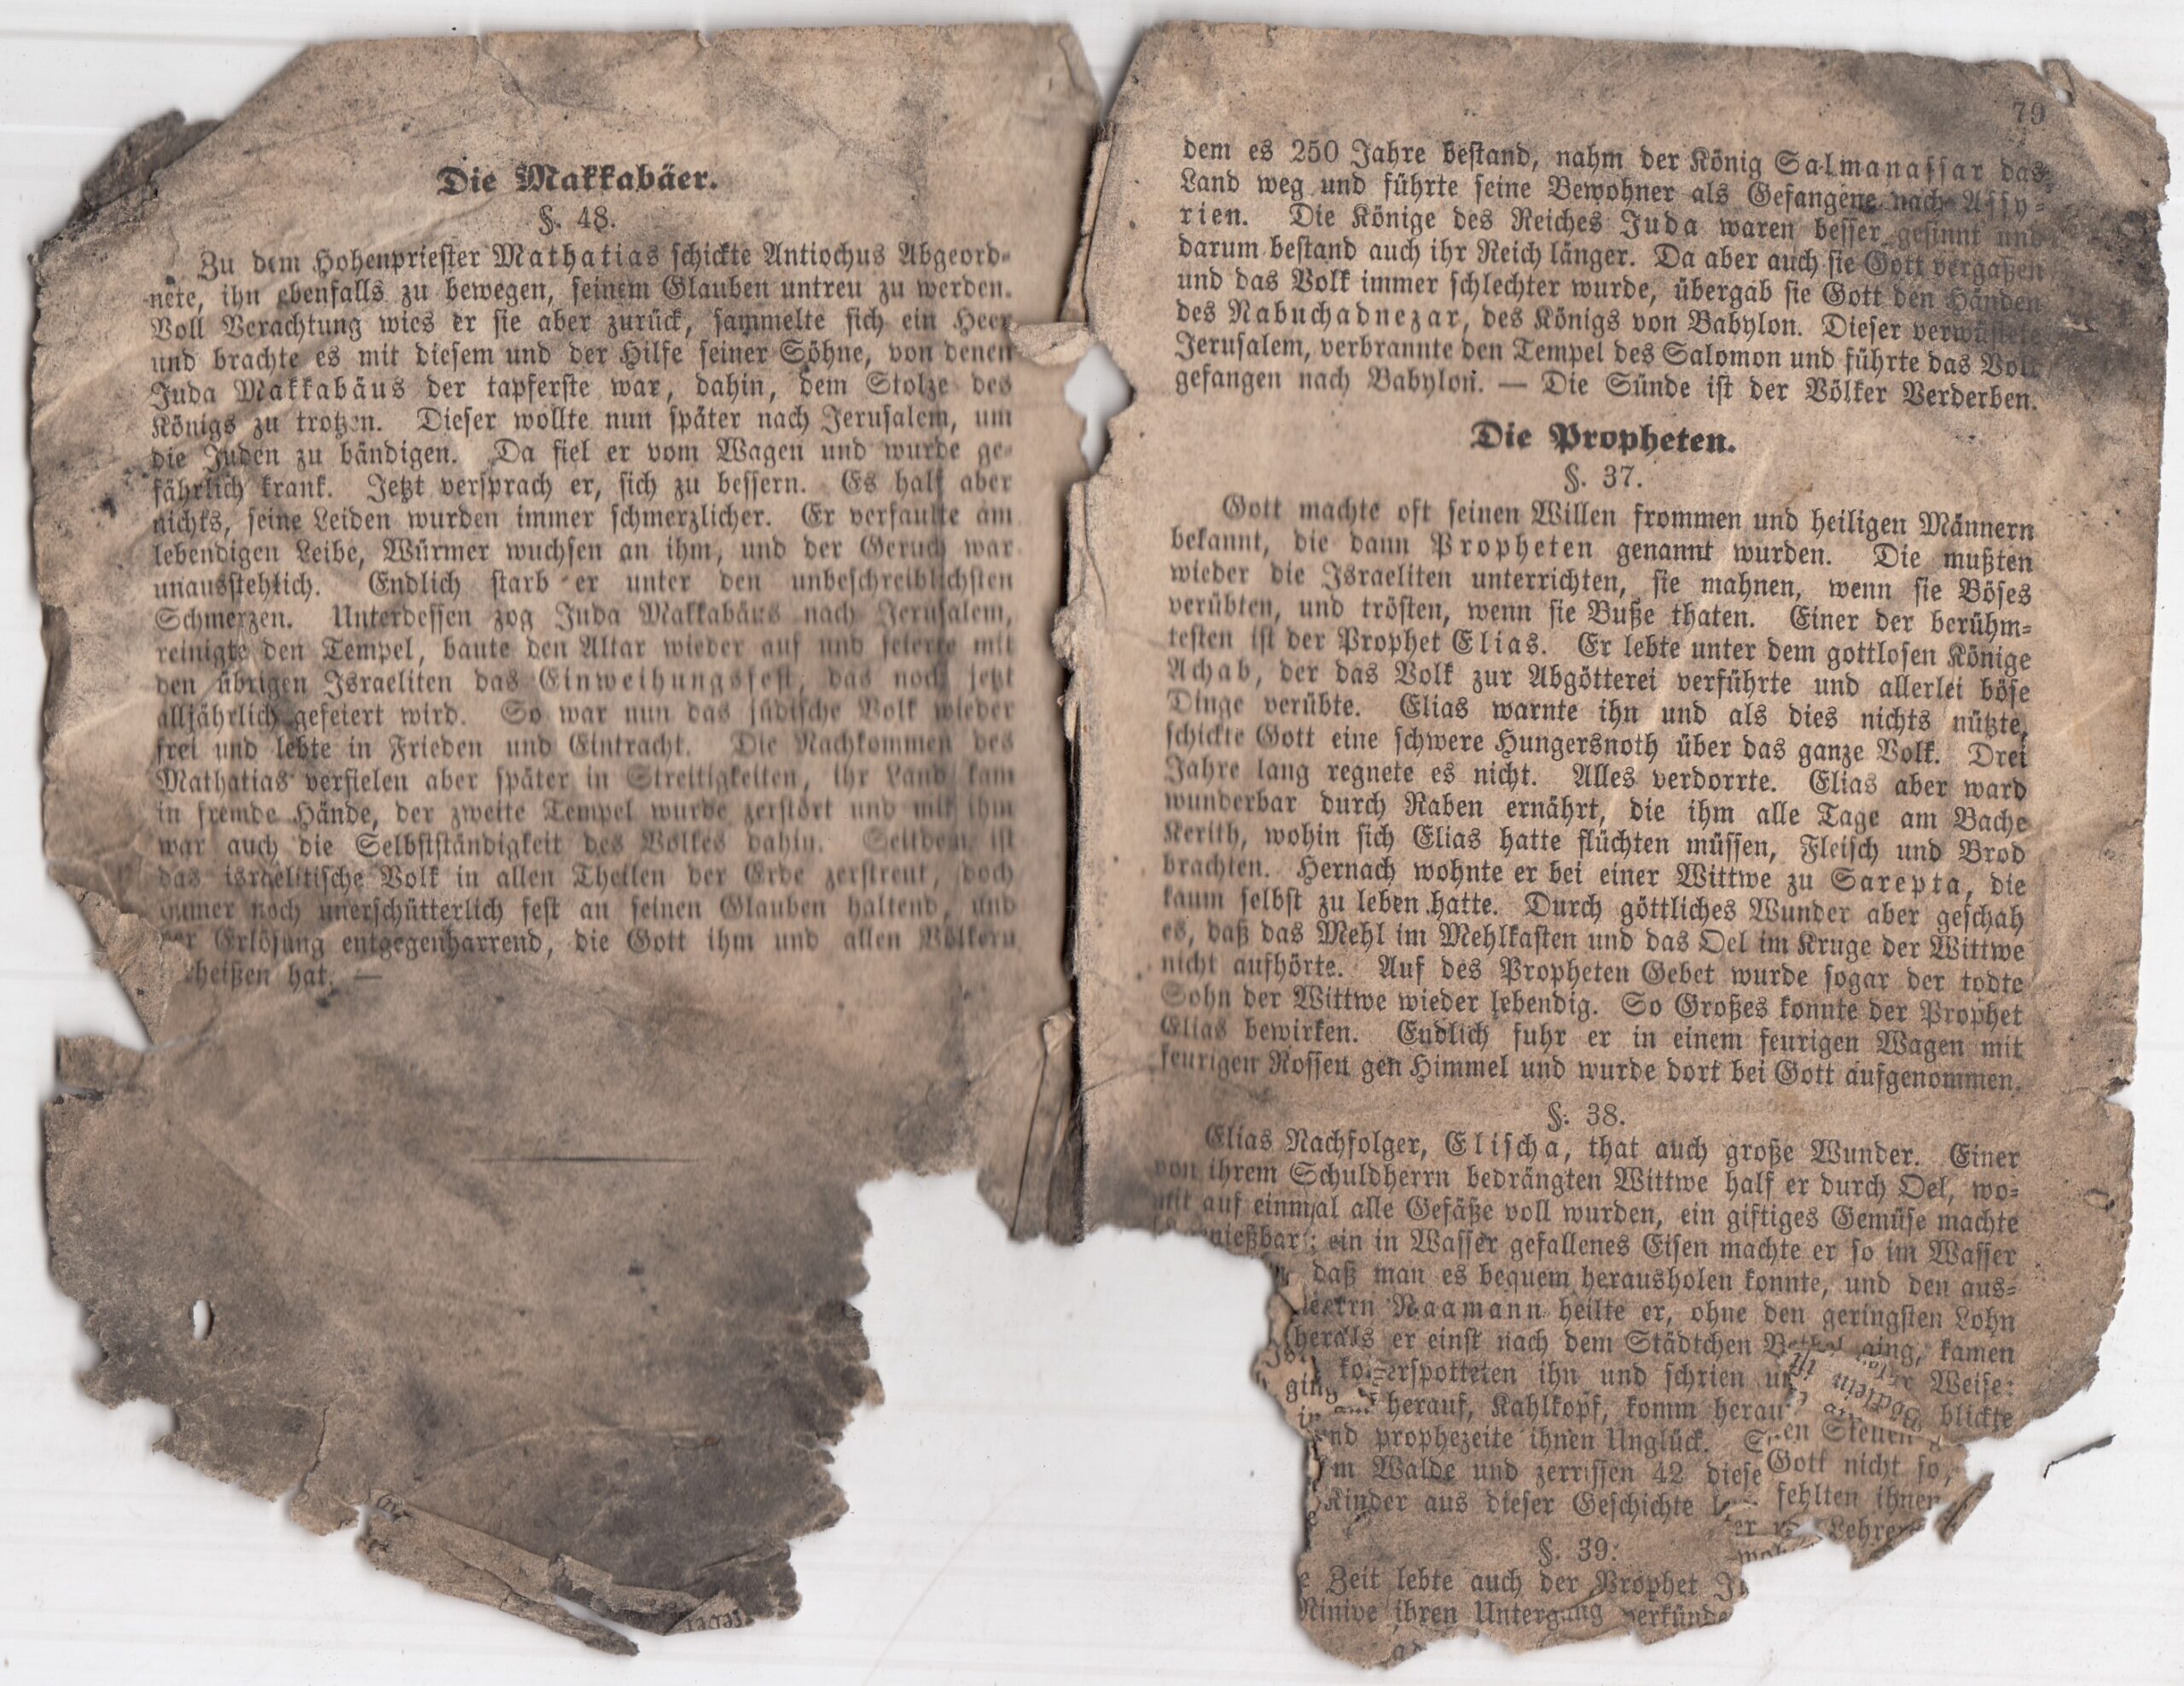 Die Makkabäer.
§. 48.
Zu dem Hohenpriester Mathatias schickte Antiochus Abgeord-
nete, ihn ebenfalls zu bewegen, seinem Glauben untreu zu werden.
Voll Verachtung wies er sie aber zurück, sammelte sich ein Heer
und brachte es mit diesem und der Hilfe seiner Söhne, von denen
Juda Makkabäus der tapferste war, dahin, dem Stolze des
Königs zu trotzen. Dieser wollte nun später nach Jerusalem, um
die Juden zu bändigen. Da fiel er vom Wagen und wurde ge-
fährlich krank. Jetzt versprach er, sich zu bessern. Es half aber
nichts, seine Leiden wurden immer schmerzlicher. Er verfaulte am
lebendigen Leibe, Würmer wuchsen an ihm, und der Geruch war
unausstehlich. Endlich starb er unter den unbeschreiblichsten
Schmerzen. Unterdessen zog Juda Makkabäus nach Jerusalem,
reinigte den Tempel, baute den Altar wieder auf und feierte mit
den übrigen Israeliten das Einweihungsfest, das noch jetzt
alljährlich gefeiert wird. So war nun das jüdische Volk wieder
frei und lebte in Frieden und Eintracht. Die Nachkommen des
Mathatias verfielen aber später in Streitigkeiten, ihr Land kam
in fremde Hände, der zweite Tempel wurde zerstört und mit ihm
war auch die Selbstständigkeit des Volkes dahin. Seitdem ist
das israelitische Volk in allen Theilen der Erde zerstreut, doch
immer noch unerschütterlich fest an seinen Glauben haltend, und
der Erlösung entgegenharrend, die Gott ihm und allen Völkern
heißen hat. —
79
dem es 250 Jahre bestand, nahm der König Salmanassar das
Land weg und führte seine Bewohner als Gefangene nach Assy-
rien. Die Könige des Reiches Juda waren besser gesinnt und
darum bestand auch ihr Reich länger. Da aber auch sie Gott vergaßen
und das Volk immer schlechter wurde, übergab sie Gott den Händen
des Nabuchadnezar, des Königs von Babylon. Dieser verwüstete
Jerusalem, verbrannte den Tempel des Salomon und führte das Volk
gefangen nach Babylon. — Die Sünde ist der Völker Verderben.
Die Propheten.
§. 37.
Gott machte oft seinen Willen frommen und heiligen Männern
bekannt, die dann Propheten genannt wurden. Die mußten
wieder die Israeliten unterrichten, sie mahnen, wenn sie Böses
verübten, und trösten, wenn sie Buße thaten. Einer der berühm-
testen ist der Prophet Elias. Er lebte unter dem gottlosen Könige
Achab, der das Volk zur Abgötterei verführte und allerlei böse
Dinge verübte. Elias warnte ihn und als dies nichts nützte,
schickte Gott eine schwere Hungersnoth über das ganze Volk. Drei
Jahre lang regnete es nicht. Alles verdorrte. Elias aber ward
wunderbar durch Raben ernährt, die ihm alle Tage am Bache
Kerith, wohin sich Elias hatte flüchten müssen, Fleisch und Brod
brachten. Hernach wohnte er bei einer Wittwe zu Sarepta, die
kaum selbst zu leben hatte. Durch göttliches Wunder aber geschah
es, daß das Mehl im Mehlkasten und das Oel im Kruge der Wittwe
nicht aufhörte. Auf des Propheten Gebet wurde sogar der todte
Sohn der Wittwe wieder lebendig. So Großes konnte der Prophet
Elias bewirken. Endlich fuhr er in einem feurigen Wagen mit
feurigen Rossen gen Himmel und wurde dort bei Gott aufgenommen.
§. 38.
Elias Nachfolger, Elischa, that auch große Wunder. Einer
von ihrem Schuldherrn bedrängten Wittwe half er durch Oel, wo-
mit auf einmal alle Gefäße voll wurden, ein giftiges Gemüse machte
nießbar; ein in Wasser gefallenes Eisen machte er so im Wasser
daß man es bequem herausholen konnte, und den aus-
Naamann heilte er, ohne den geringsten Lohn
als er einst nach dem Städtchen ging, kamen
verspotteten ihn und schrien Weise:
ging herauf, Kahlkopf, komm herauf blickte
und prophezeite ihnen Unglück. en Stellen
im Walde und zerrissen 42 diese Gott nicht so,
Kinder aus dieser Geschichte fehlten ihnen
Lehrer
§. 39.
Zeit lebte auch der Prophet
Ninive ihren Untergang verkünde